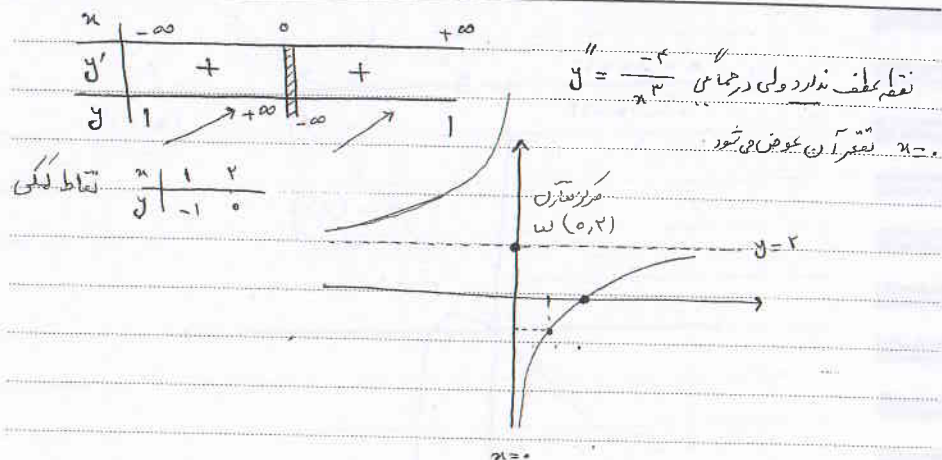 x | -∞ 0 +∞
y' | + +
y | 1 +∞ -∞ 1
نقطه عطف ندارد ولی در همسایگی y" = -۴/x³
x=۰ تقعر آن عوض می‌شود
نقاط کمکی
x | 1 ۲
y | -1 ۰
مرکز تقارن
ω (0,۲)
y=۲
1
x=۰